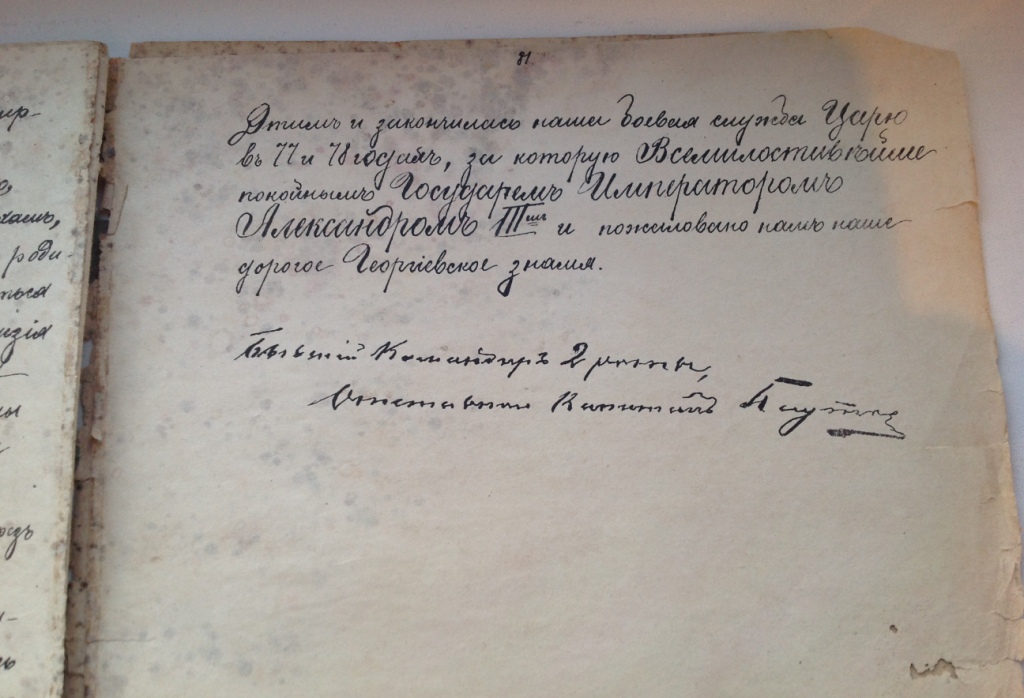 31
Этимъ и закончилась наша боевая служба Царю
въ 77 и 78 годахъ, за которую Всемилостивѣйше
покойнымъ Государемъ Императоромъ
Александромъ IIIимъ и пожаловано намъ наше
дорогое Георгіевское знамя.
Бывшій Командиръ 2 роты,
Отставной Капитанъ
хать,
роди-
ться
изія